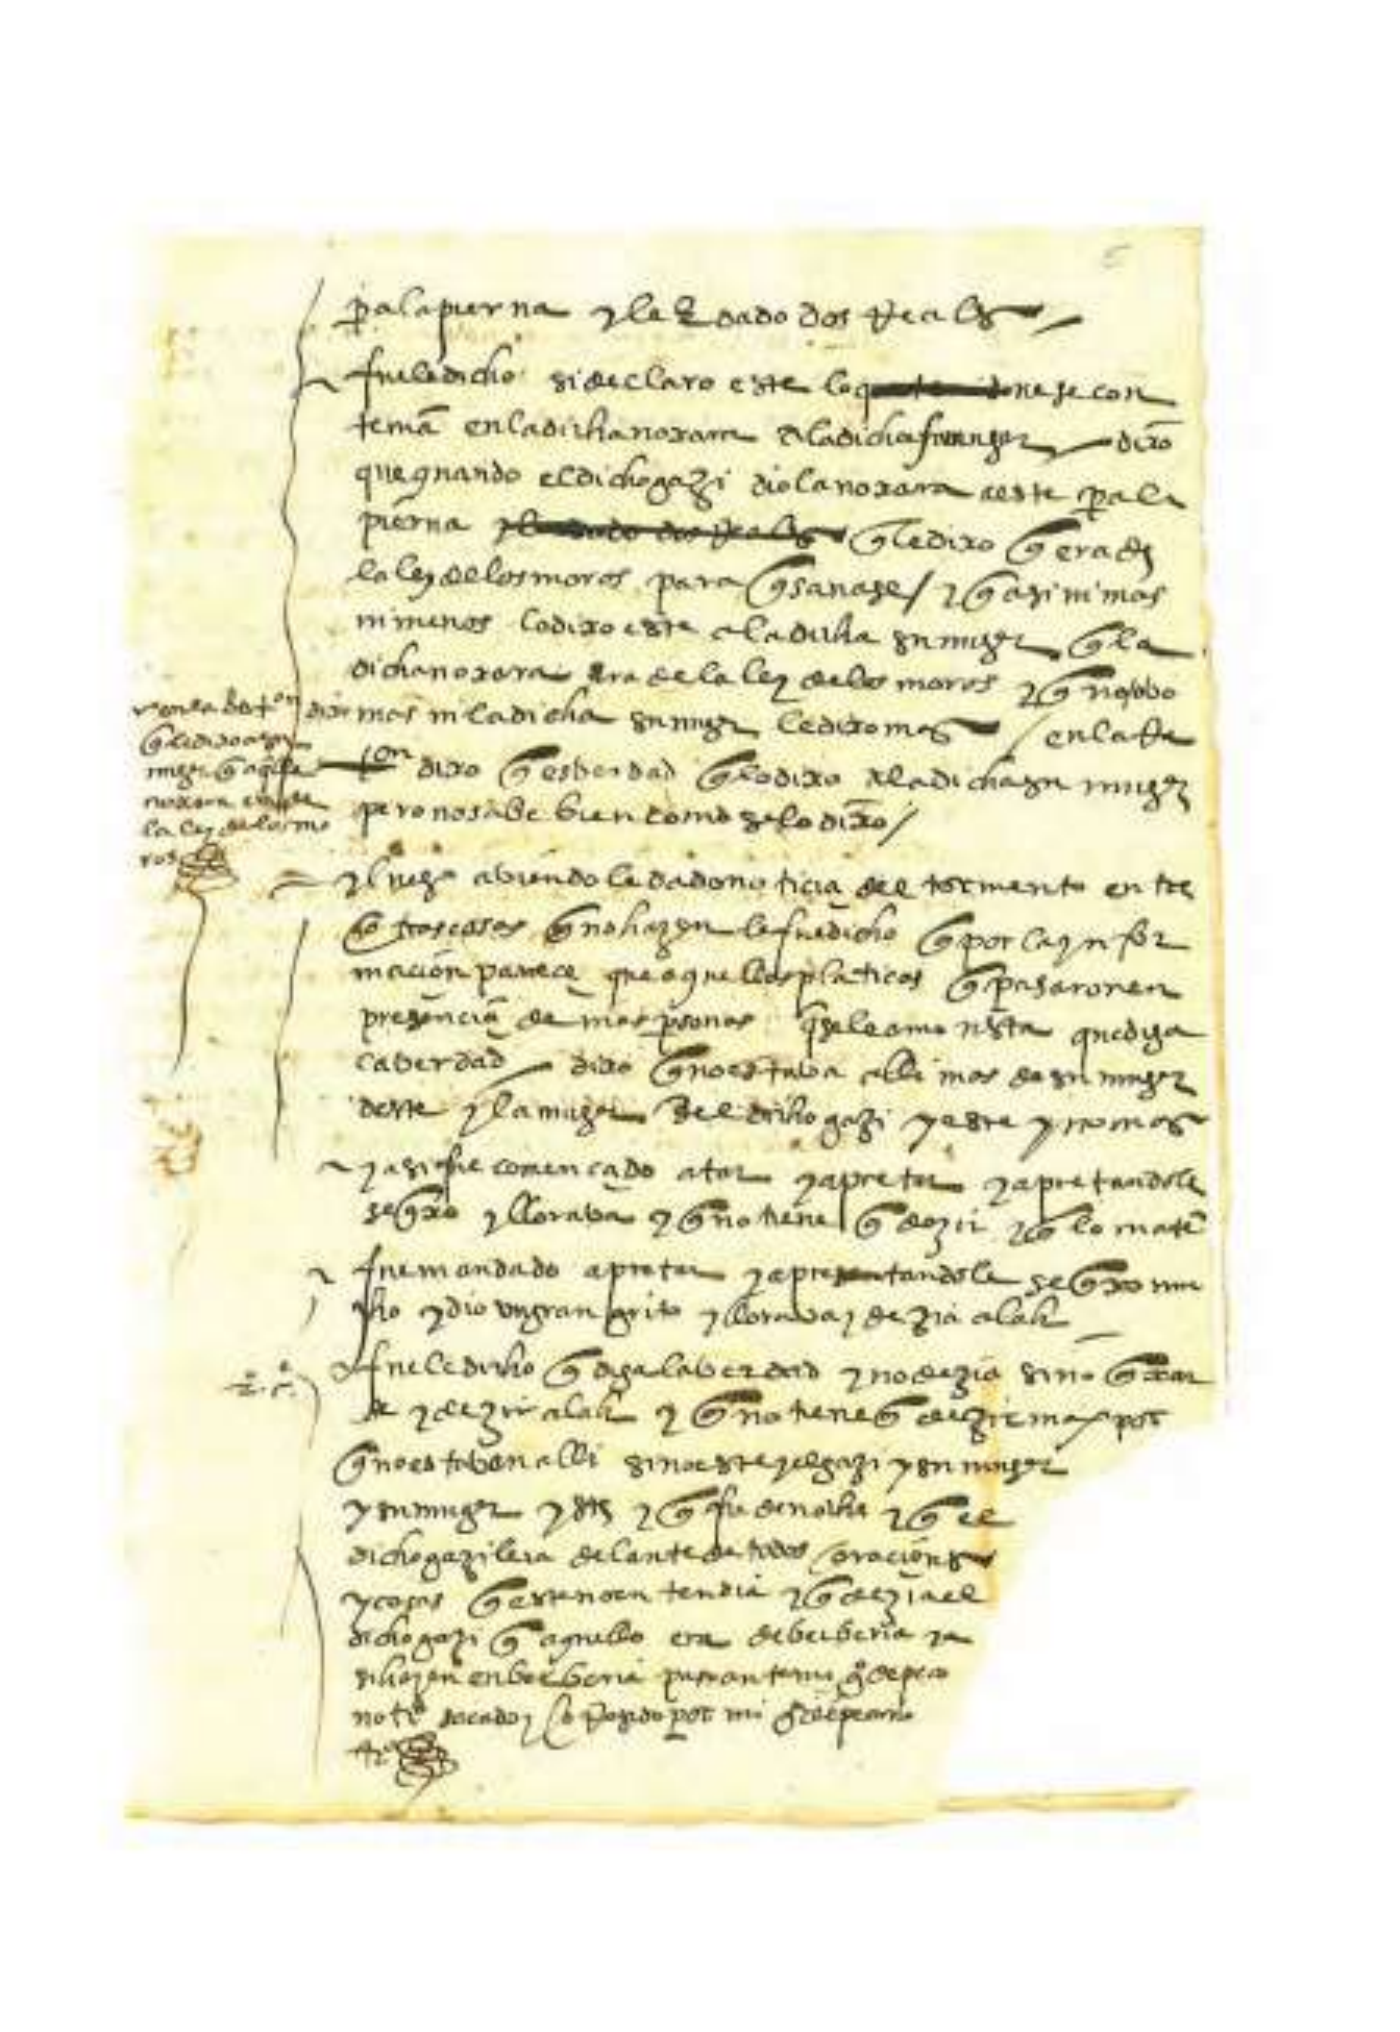 pa la pierna y le dado dos Reales
fuele dicho si declaro este lo que se con
tenia en la dicha noxara a la dicha su muger dixo
que quando el dicho gazi dio la noxara a este pa la
pierna q le dixo q era de
la ley de los moros para q sanase / y q asi ni mas
ni menos lo dixo este a la dicha su muger q la
dicha noxara era de la ley de los moros y q no
mas ni la dicha su muger le dixo mas / en la
ron dixo q es berdad q lo dixo a la dicha su muger
pero no sabe bien como se lo dixo /
q le dixo a su
muger q aqlla
noxara era de
la ley de los mo
ros
y luego abiendole dado noticia del tormento en tre
q no hazen le fue dicho q por la ynfor
mación parece que aquellas platicas q pasaron en
presencia de mas psonas q se le amonesta que diga
la verdad dixo q no estava alli mas de su muger
deste y la muger del dicho gazi y este y no mas
y asi fue comencado a tar y apretar y apretandole
se qxo y llorava y q no tiene q dezir y q lo maten
fue mandado apretar y apretandole se qxo mu
cho y dio un gran grito y llorava y dezia alah
fuele dicho q diga la verdad y no dezia sino qxar
se y dezir alah y q no tiene q dezir mas por
q no estaban alli sino este y el gazi y su muger
y su muger y q fue de noche y q el
dicho gazi leia delante de todos oraciones
y cosas q este no entendia y q dezia el
dicho gazi q aquello era de berberia y a
si hazen en berberia paso ante mi
notº por mi